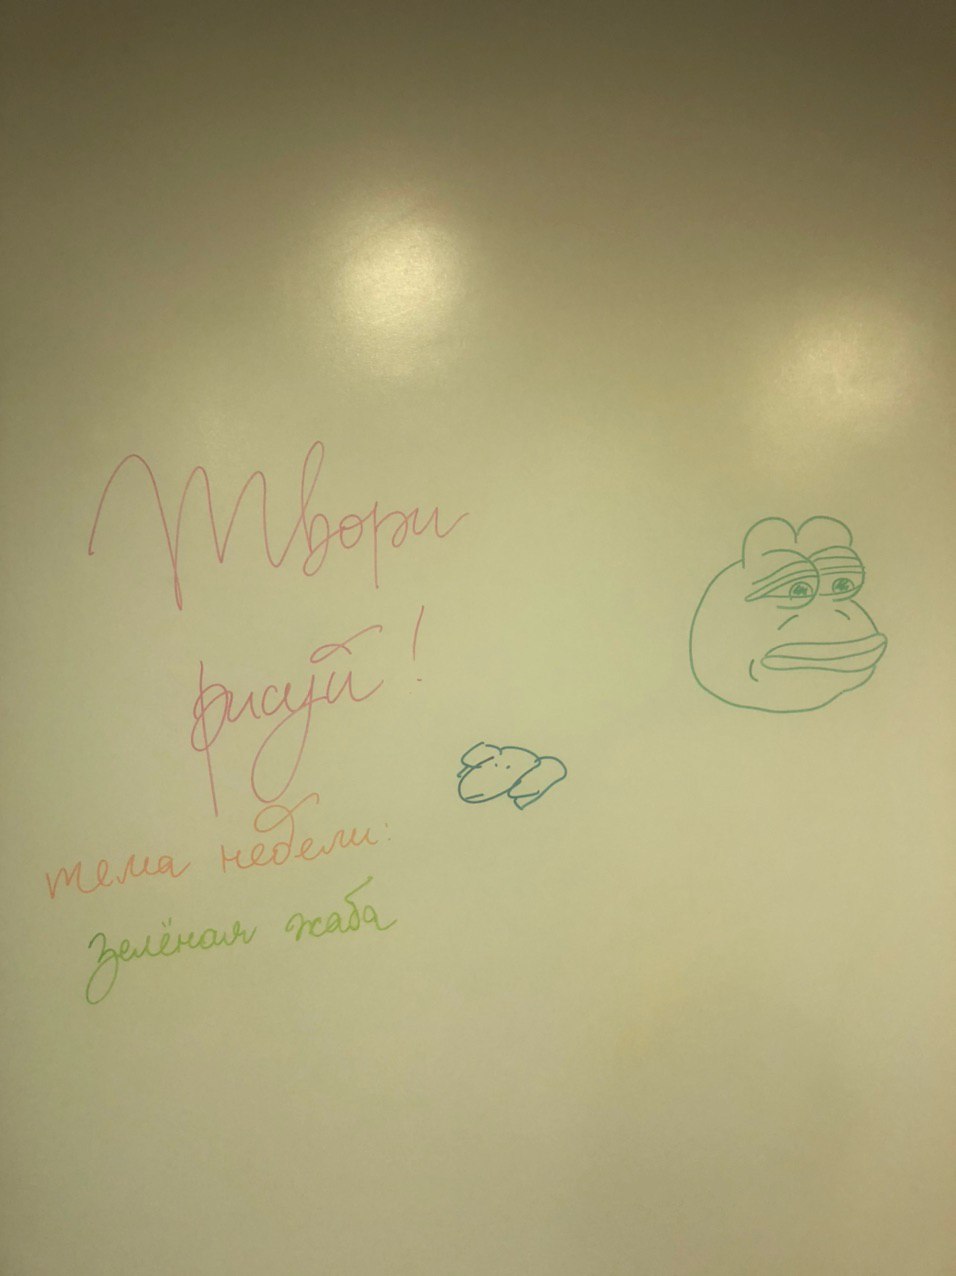 Твори
рисуй!
тема недели:
зелёная жаба